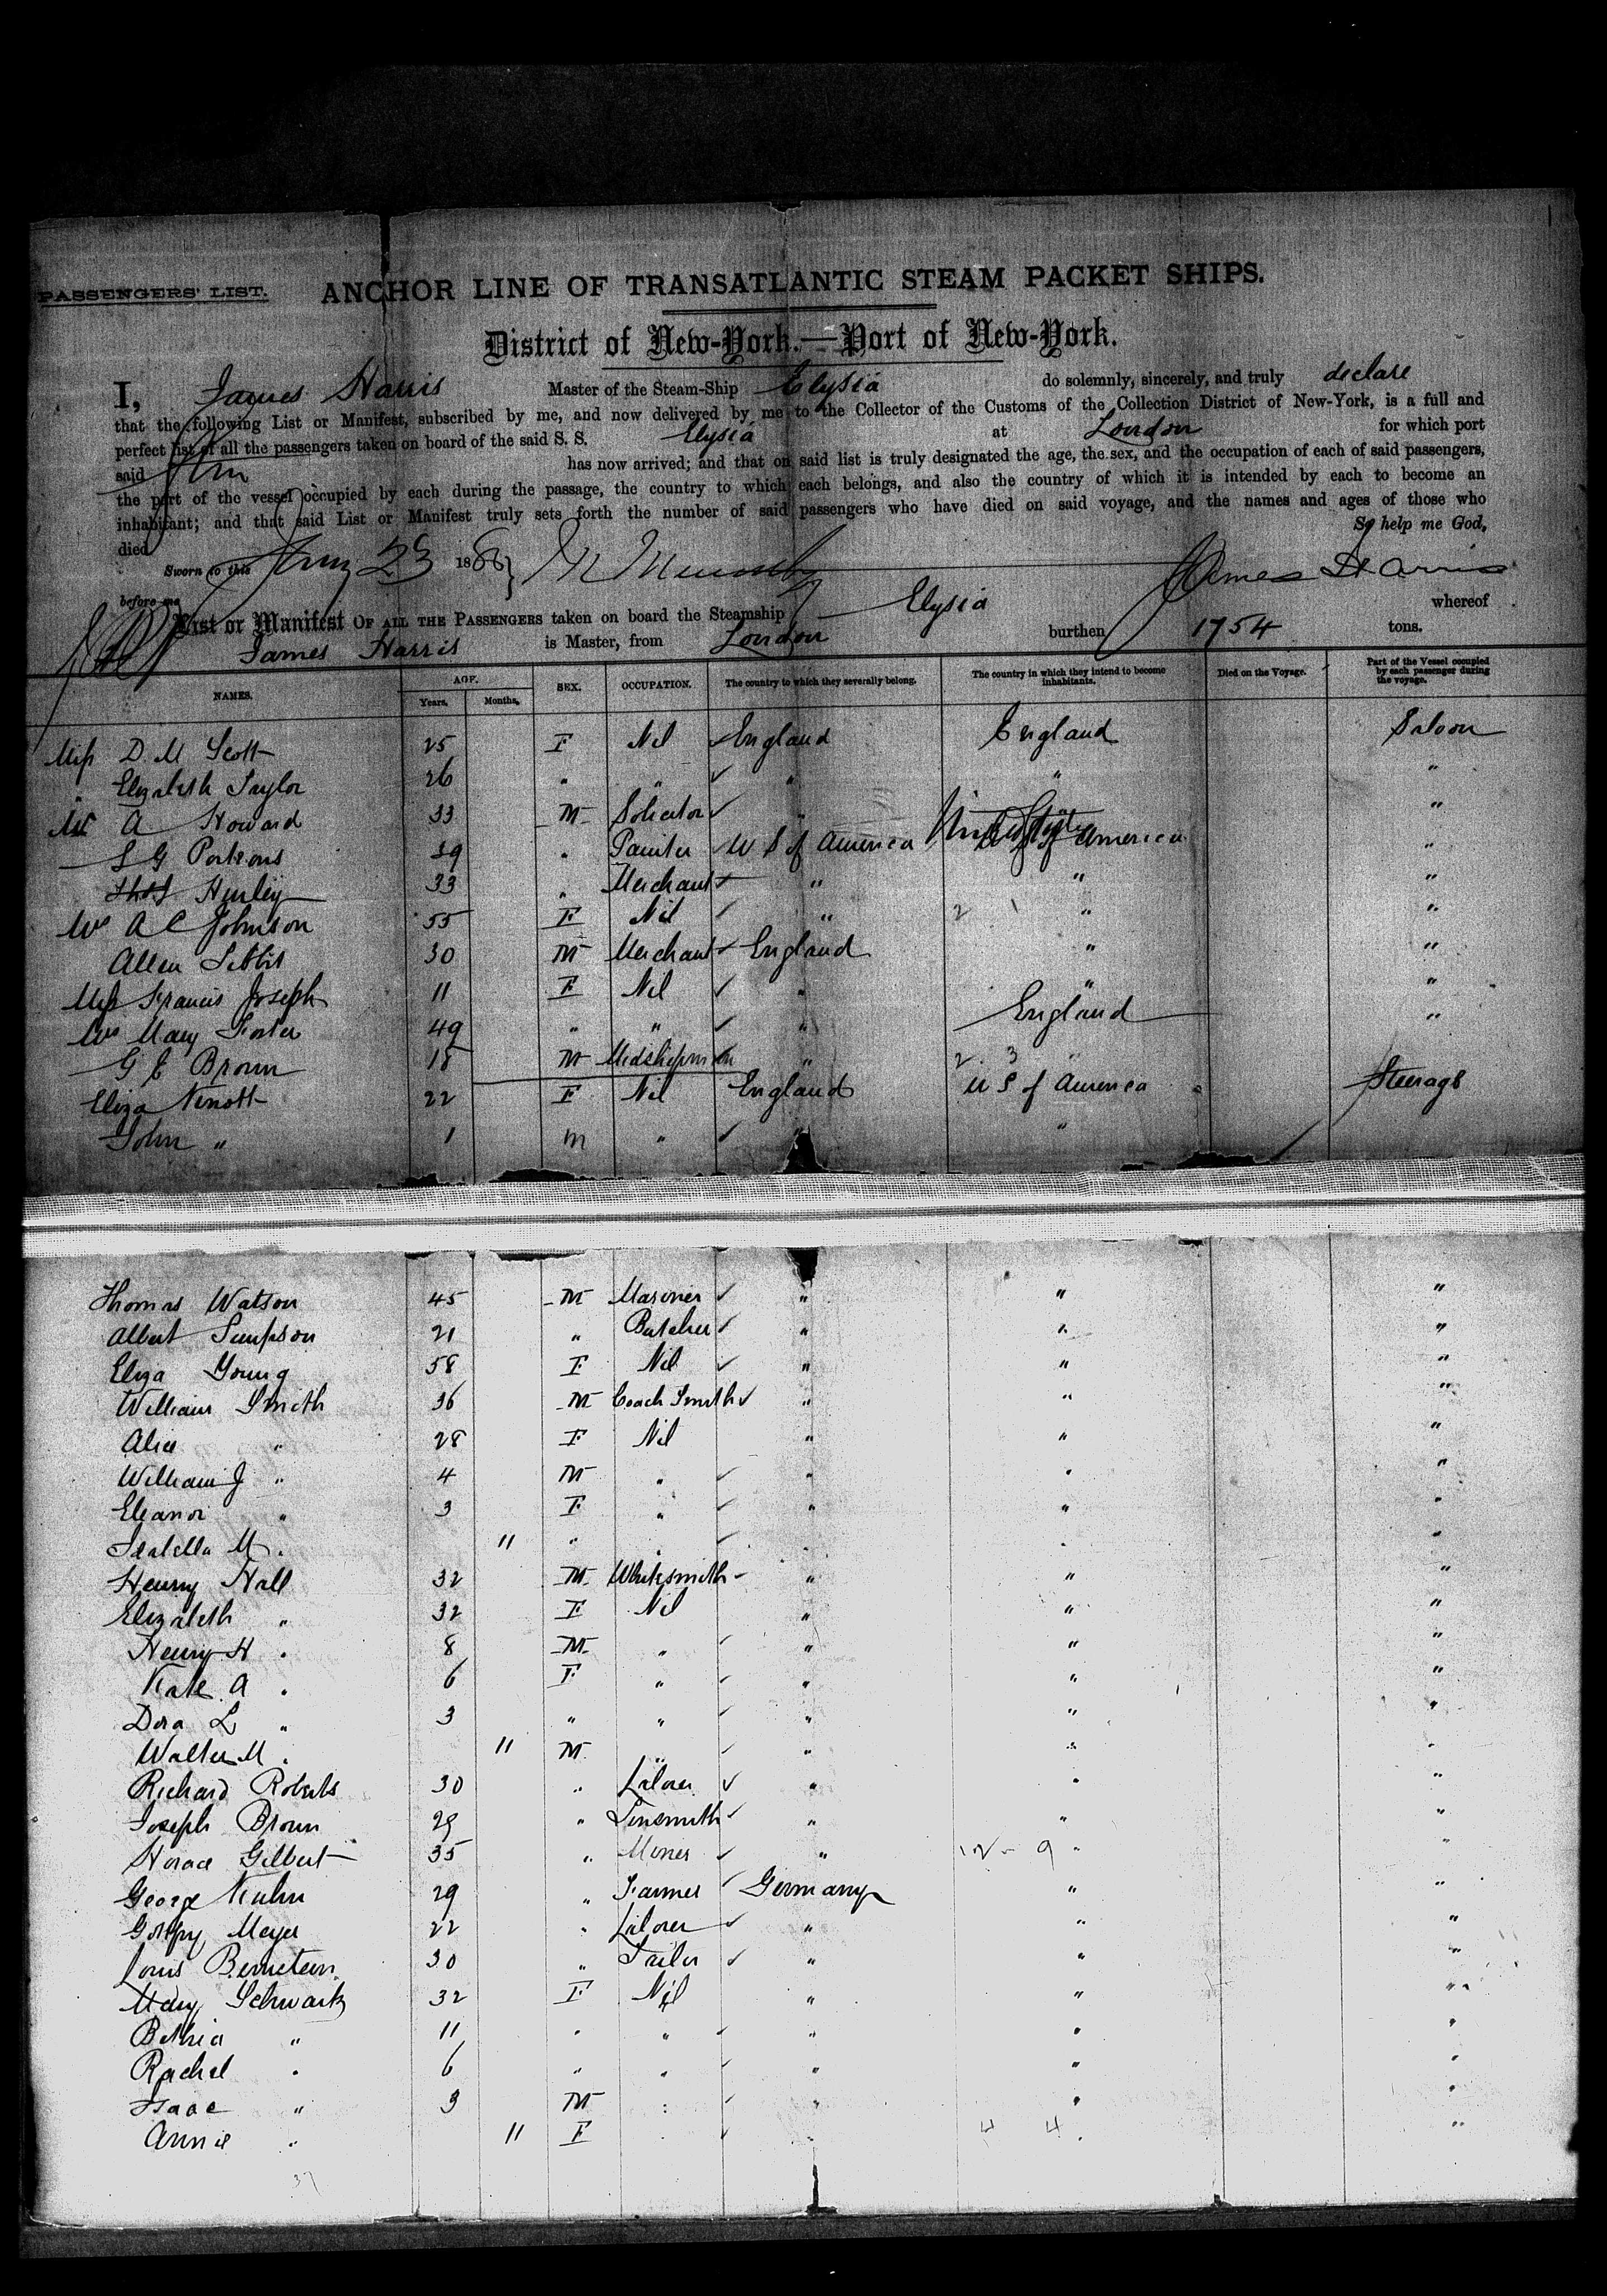 PASSENGERS' LIST.
ANCHOR LINE OF TRANSATLANTIC STEAM PACKET SHIPS.
District of New-York.—Port of New-York.
I, James Harris Master of the Steam-Ship Elysia do solemnly, sincerely, and truly declare
that the following List or Manifest, subscribed by me, and now delivered by me to the Collector of the Customs of the Collection District of New-York, is a full and
perfect list of all the passengers taken on board of the said S. S. Elysia at London for which port
said has now arrived; and that on said list is truly designated the age, the sex, and the occupation of each of said passengers,
the part of the vessel occupied by each during the passage, the country to which each belongs, and also the country of which it is intended by each to become an
inhabitant; and that said List or Manifest truly sets forth the number of said passengers who have died on said voyage, and the names and ages of those who
died. So help me God,
Sworn to this 23 188 James Harris
before me
List or Manifest OF ALL THE PASSENGERS taken on board the Steamship Elysia whereof
James Harris is Master, from London burthen 1754 tons.
NAMES. AGE. Years. Months. SEX. OCCUPATION. The country to which they severally belong. The country in which they intend to become inhabitants. Died on the Voyage. Part of the Vessel occupied by each passenger during the voyage.
Miss D. M Scott 25 F Nil England England Saloon
" Elizabeth Taylor 26 " " " " "
Mr A Howard 33 M Solicitor " United States "
S G Parsons 39 " Painter U S of America U S of America "
Hurley 33 " Merchant " " "
Mrs A C Johnson 55 F Nil " 2 1 " "
Allen 30 M Merchant England " "
Miss Francis Joseph 11 F Nil " " "
Mrs Mary Foster 49 " " " England "
G E Brown 18 M Midshipman " 2 3 "
Eliza Knott 22 F Nil England U S of America Steerage
John " 1 M " " "
Thomas Watson 45 M Mariner " " "
Albert Simpson 21 " Butcher " " "
Eliza Young 58 F Nil " " "
William Smith 36 M Coach Smith " " "
Alice " 28 F Nil " " "
William J " 4 M " " " "
Eleanor " 3 F " " " "
Isabella M " 11 " " " " "
Henry Hall 32 M Whitesmith " " "
Elizabeth " 32 F Nil " " "
Henry H " 8 M " " " "
Kate A " 6 F " " " "
Dora L " 3 " " " " "
Walter M " 11 M " " " "
Richard Roberts 30 " Laborer " " "
Joseph Brown 29 " Tinsmith " " "
Horace Gilbert 35 " Miner " 12 - 9 " "
George Kuhn 29 " Farmer Germany " "
Meyer 22 " Laborer " " "
Louis Bernstein 30 " Tailor " " "
Mary Schwartz 32 F Nil " " "
Bertha " 11 " " " " "
Rachel " 6 " " " " "
Isaac " 3 M " " " "
Annie " 11 F " " 4 4 " "
37